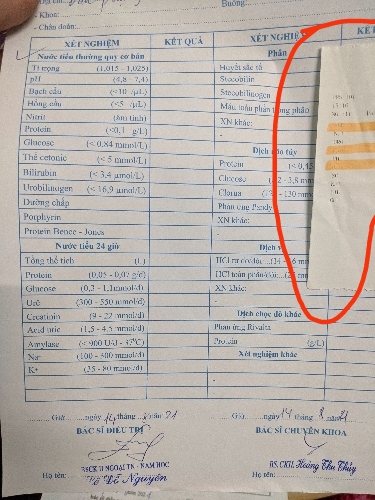 - Khoa: Buồng:
- Chẩn đoán:
XÉT NGHIỆM KẾT QUẢ XÉT NGHIỆM
Nước tiểu thường quy cơ bản Phân
Tỉ trọng (1,015 - 1,025) Huyết sắc tố
pH (4,8 - 7,4) Stecobilin
Bạch cầu (<10 /µL) Stecobilinogen
Hồng cầu (<5 /µL) Máu toàn phần trong phân
Nitrit (âm tính) XN khác:
Protein (<0,1 g/L) -
Glucose (< 0.84 mmol/L) Dịch não tủy
Thể cetonic (< 5 mmol/L) Protein (< 0,45
Bilirubin (< 3.4 µmol/L) Glucose
Urobilinogen (< 16,9 µmol/L) Clorua
Dưỡng chấp Phản ứng Pandy
Porphyrin XN khác:
Protein Bence - Jones -
Nước tiểu 24 giờ Dịch
Tổng thể tích (L) HCl tự do
Protein (0,05 - 0,07 g/d) HCl toàn phần
Glucose (0,3 - 1,1mmol/d) XN khác:
Urê (300 - 550 mmol/d) -
Creatinin (9 - 22 mmol/d) Dịch chọc dò khác
Acid uric (1,5 - 4,5 mmol/d) Phản ứng Rivalta
Amylase (< 900 U/l - 37°C) Protein (g/L)
Na+ (100 - 300 mmol/d) Xét nghiệm khác
K+ (35 - 80 mmol/d)
Giờ ngày 14 tháng 8 năm 21 Giờ ngày 14 tháng 8
BÁC SĨ ĐIỀU TRỊ BÁC SĨ CHUYÊN KHOA
BSCK II NGOẠI TN - NAM HỌC BS.CKII. Hoàng Thu Thủy
Họ tên: Võ Đỗ Nguyên Họ tên: